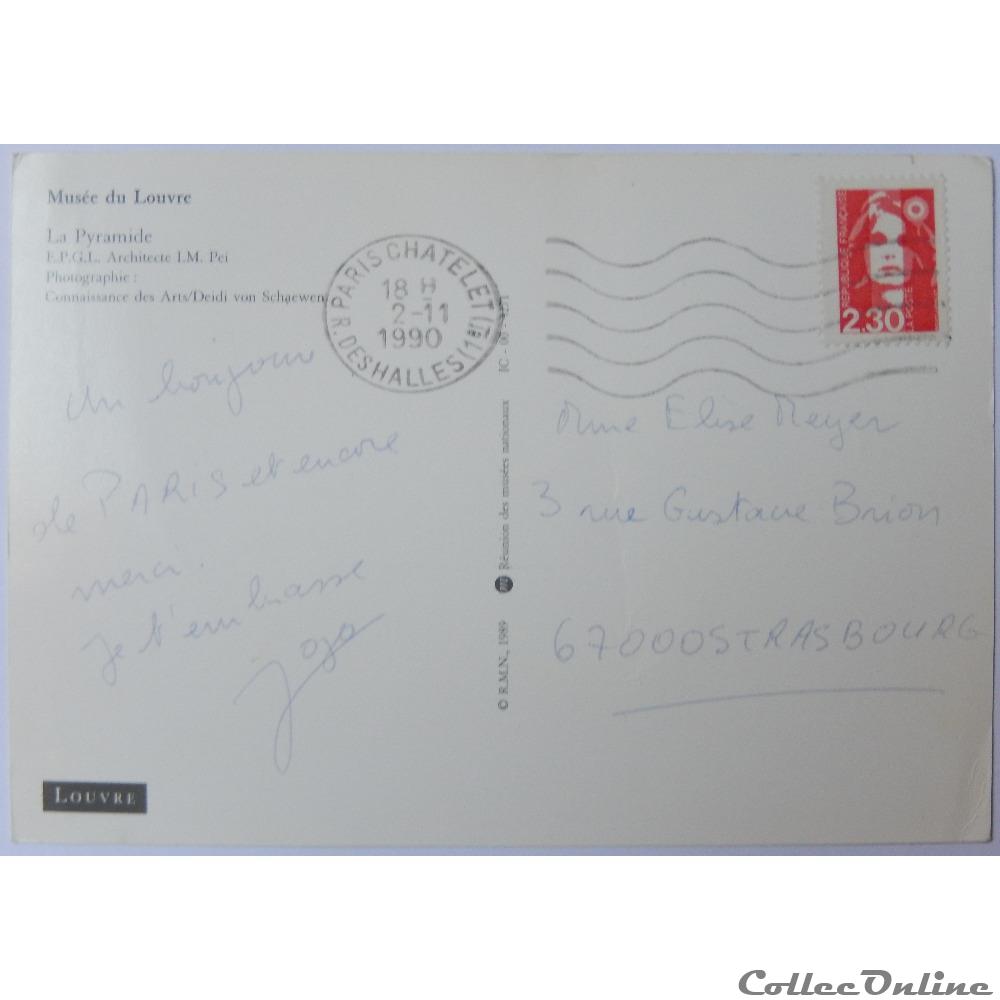 Musée du Louvre
La Pyramide
E.P.G.L. Architecte I.M. Pei
Photographie :
Connaissance des Arts/Deidi von Schaewen
PARIS CHATELET (1er)
18 H
2-11
1990
R DES HALLES
REPUBLIQUE FRANÇAISE
LA POSTE
2,30
un bonjour
de PARIS et encore
merci.
Je t'embrasse
Jojo
© R.M.N., 1989 Réunion des musées nationaux IC - 00 -
Mme Elise Meyer
3 rue Gustave Brion
67000 STRASBOURG
LOUVRE
CollecOnline